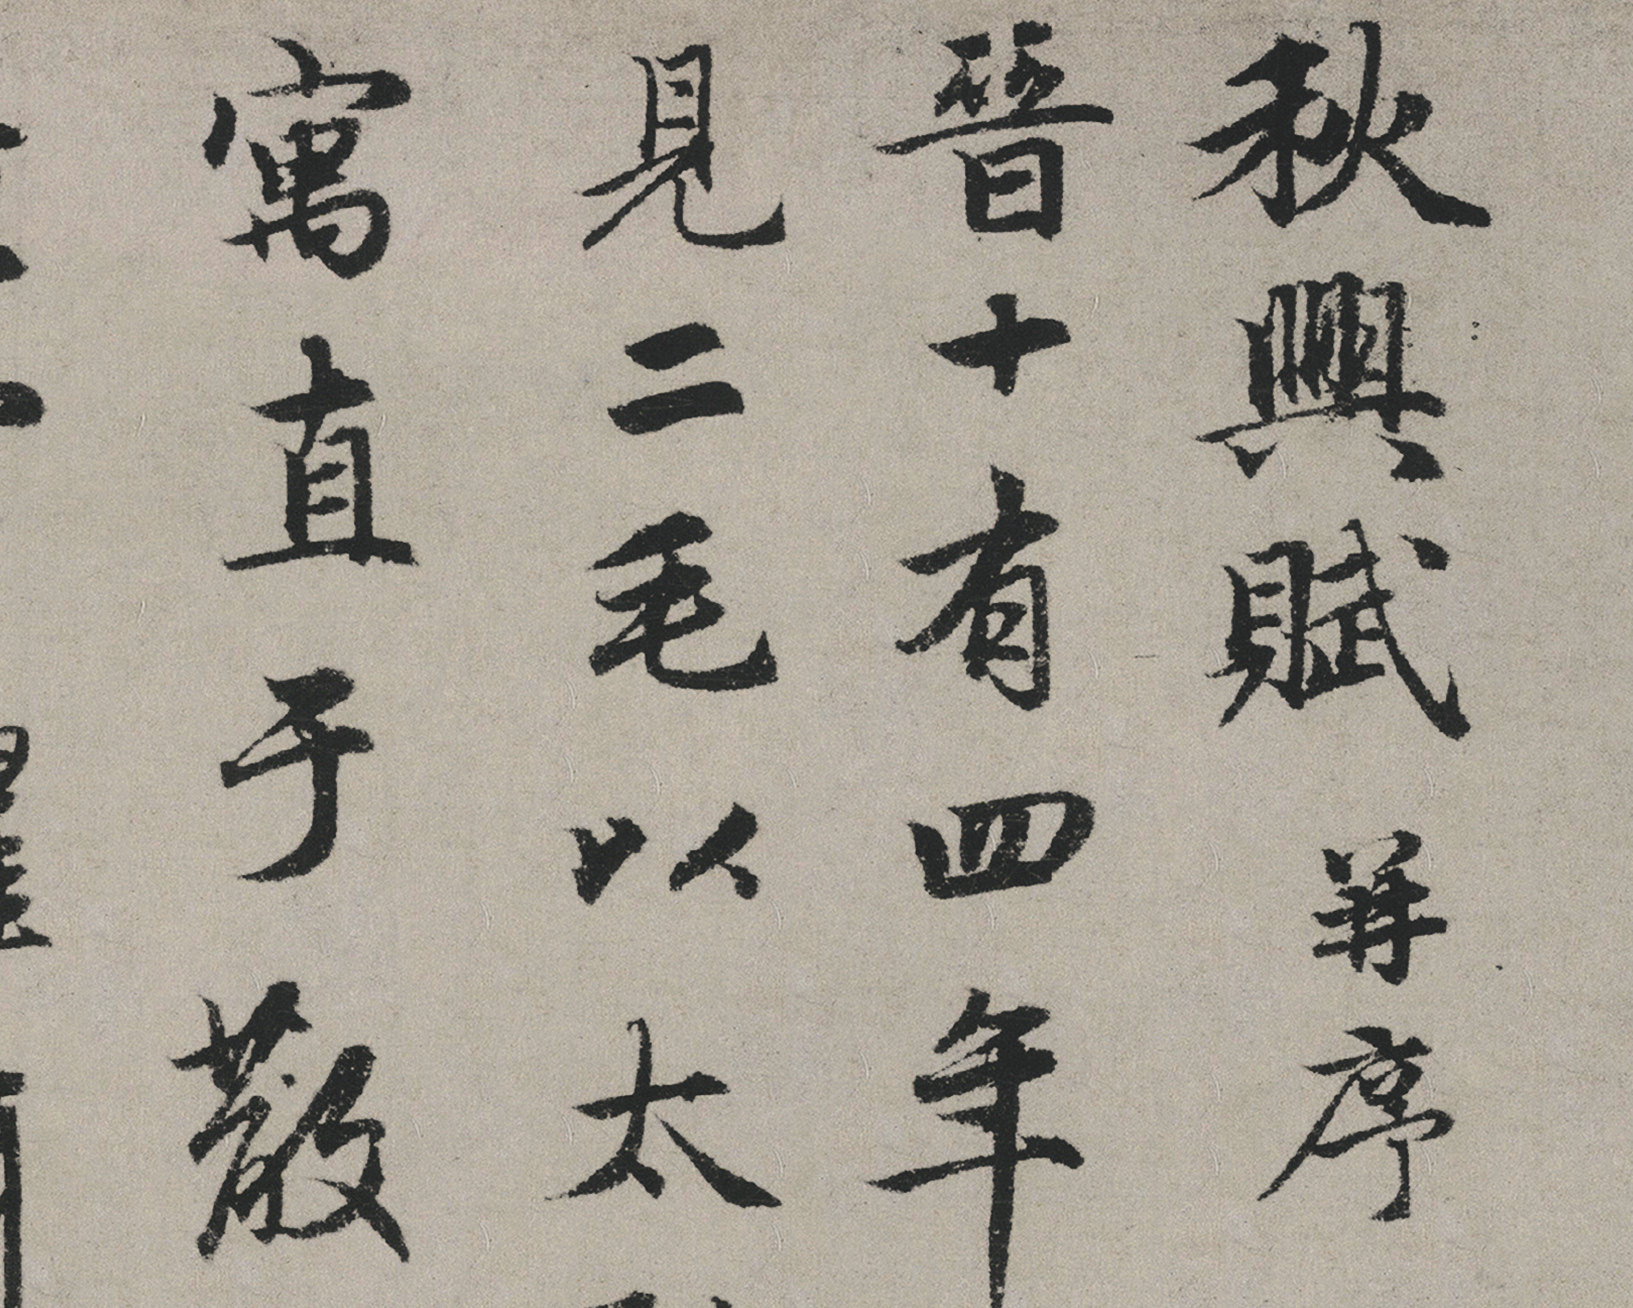 秋興賦 并序
晉十有四年
見二毛以太
寓直于散